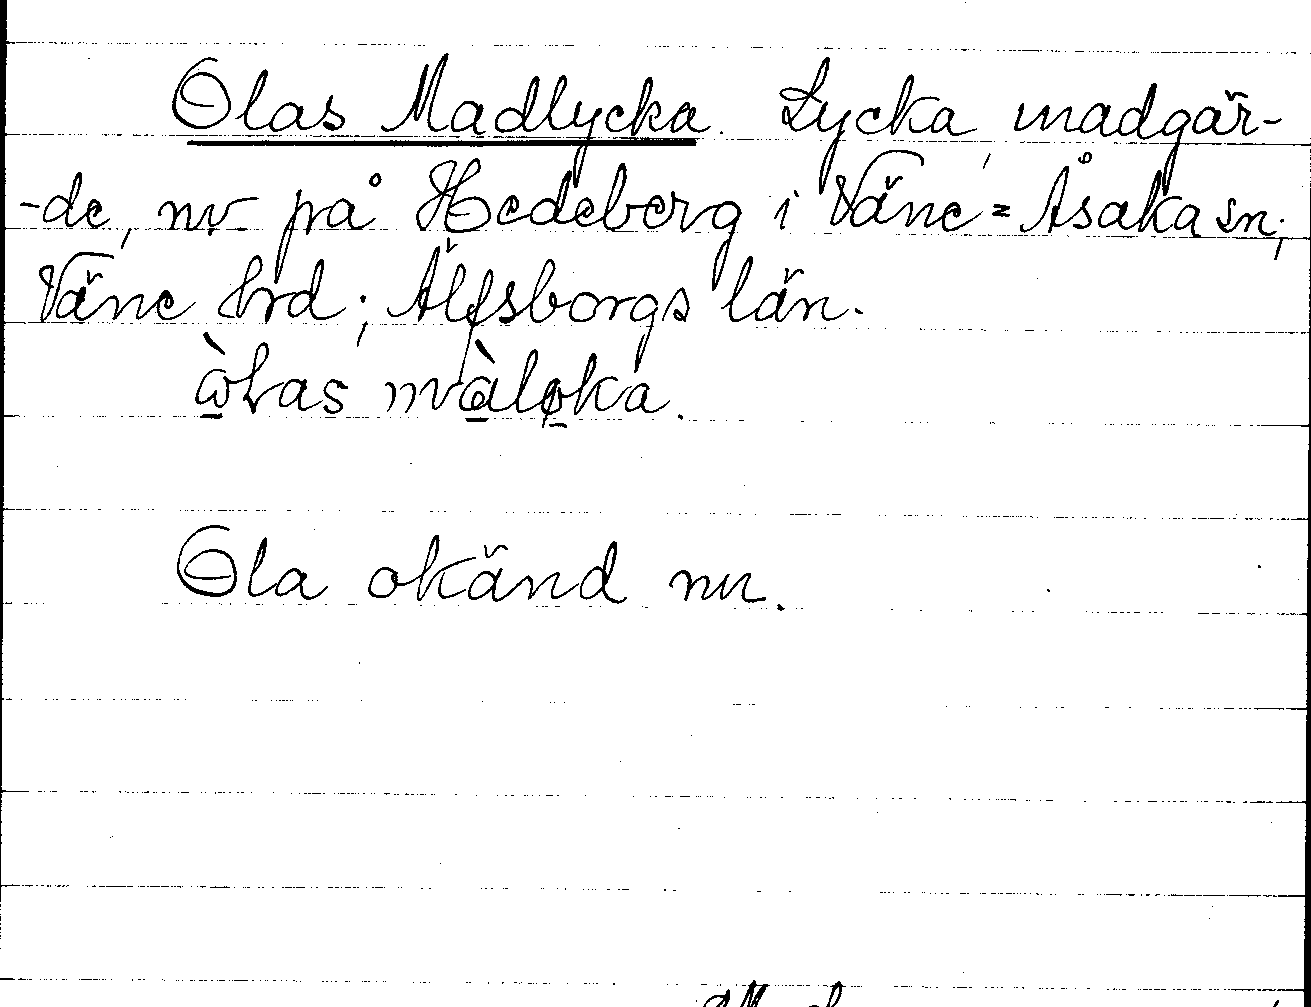 Olas Madlycka. Lycka, madgär-
-de, nv på Hedeberg i Väne=Åsaka sn;
Väne hrd; Älfsborgs län.
ὼ̱las mà̱lø̱ka.
Ola okänd nu.